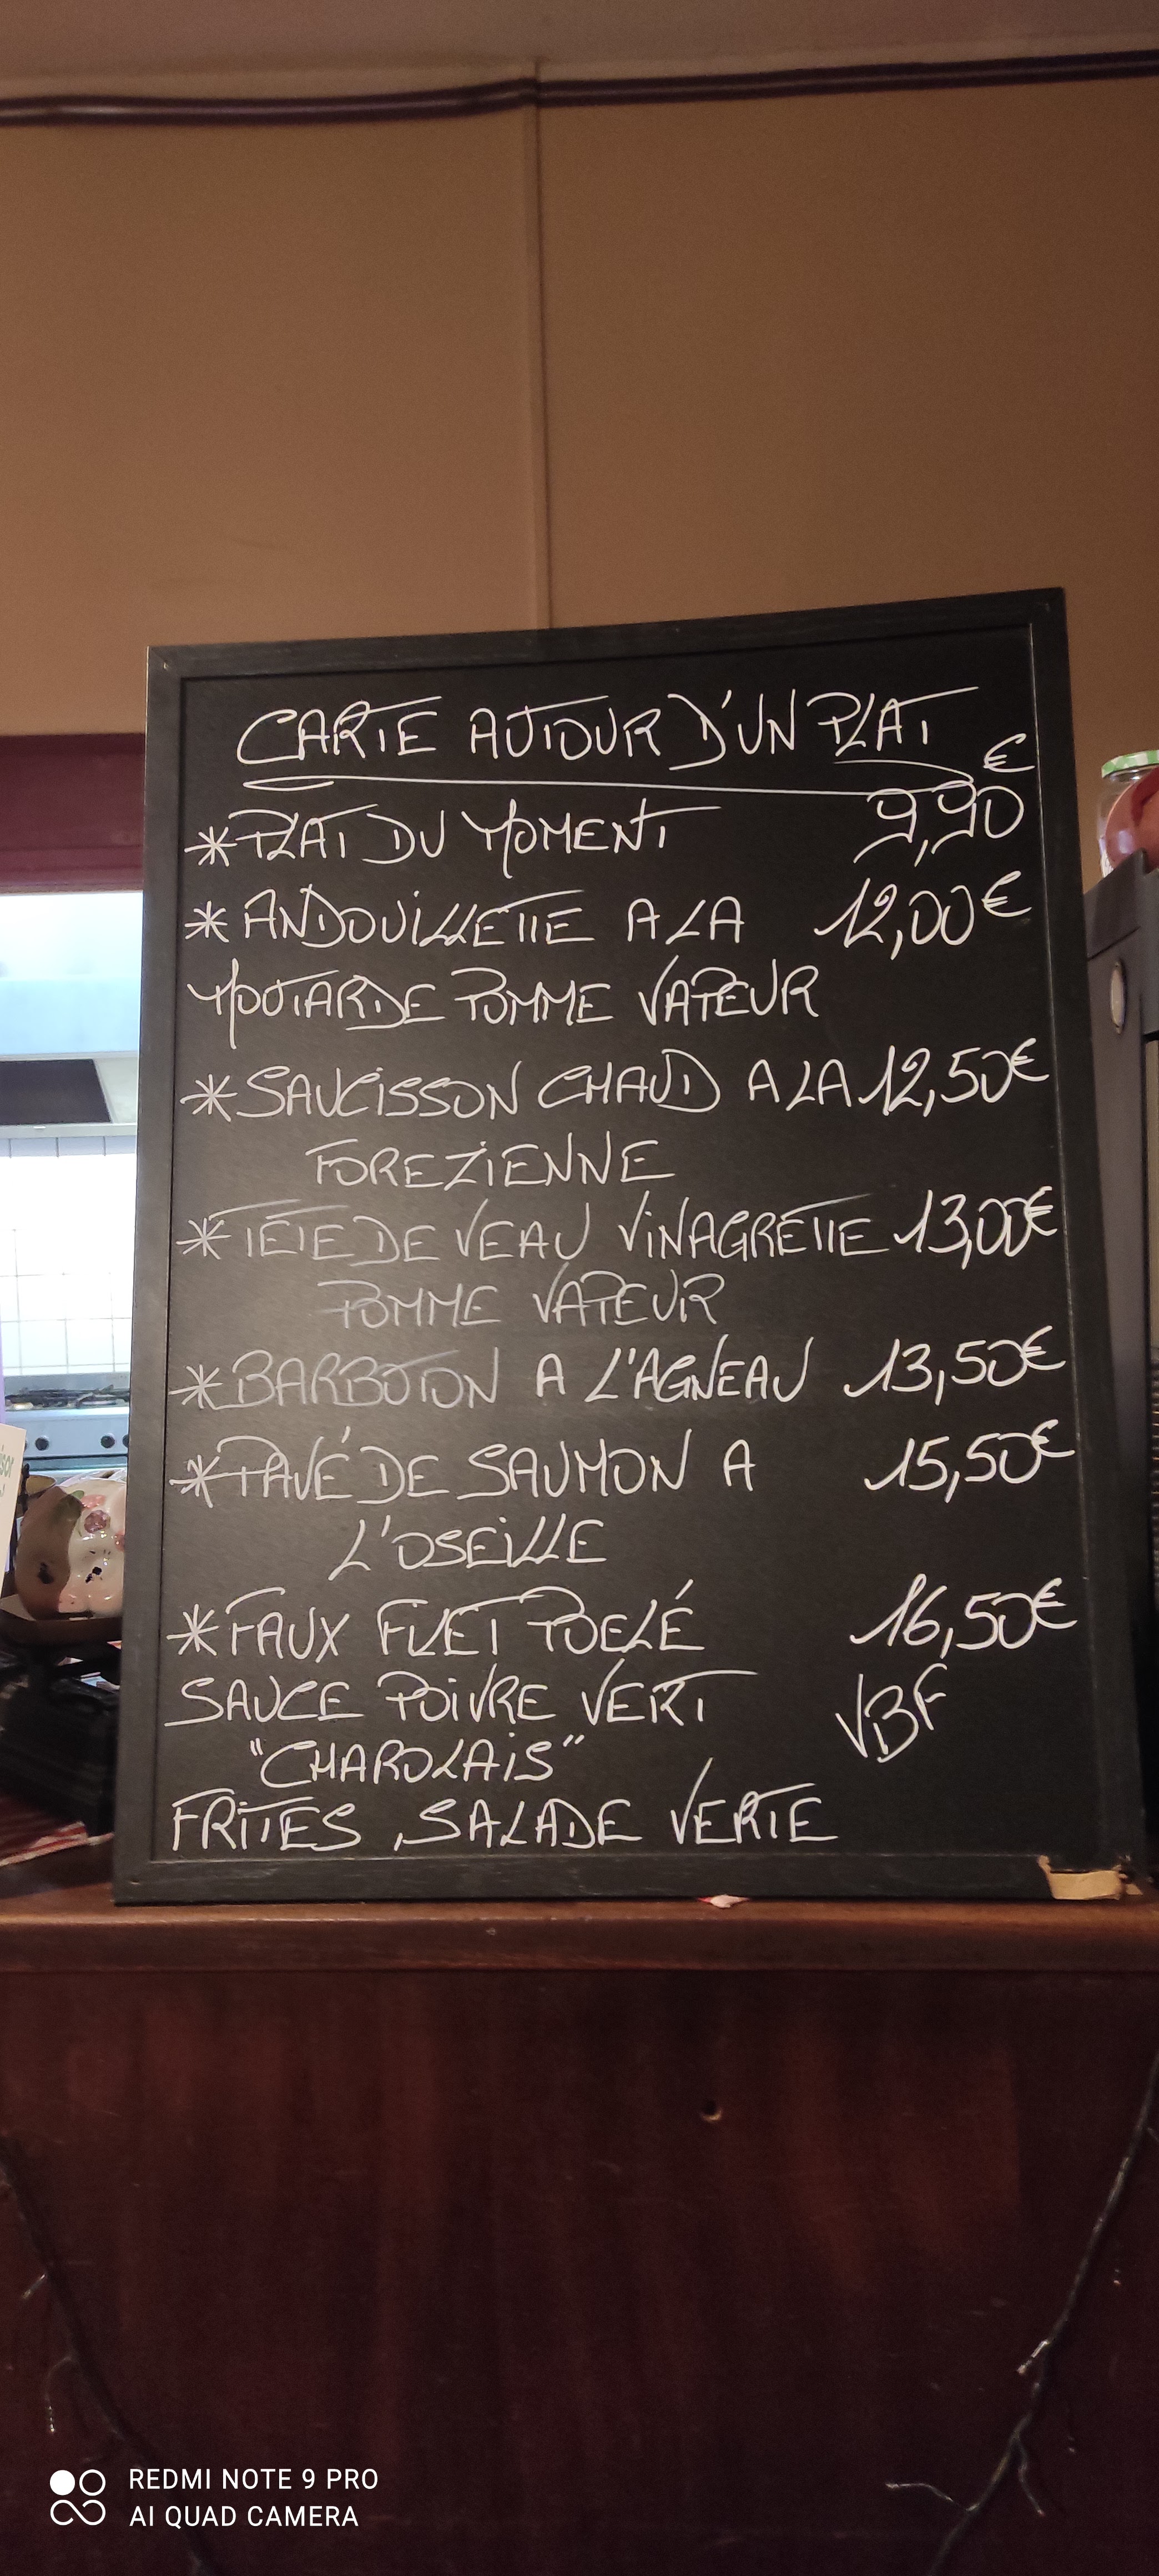 CARTE AUTOUR D'UN PLAT
*PLAT DU MOMENT 9,90€
*ANDOUILLETTE A LA 12,00€
MOUTARDE POMME VAPEUR
*SAUCISSON CHAUD A LA 12,50€
FOREZIENNE
*TÊTE DE VEAU VINAGRETTE 13,00€
POMME VAPEUR
*BARBOTON A L'AGNEAU 13,50€
*PAVÉ DE SAUMON A 15,50€
L'OSEILLE
*FAUX FILET POELÉ 16,50€
SAUCE POIVRE VERT VBF
"CHAROLAIS"
FRITES, SALADE VERTE
REDMI NOTE 9 PRO
AI QUAD CAMERA